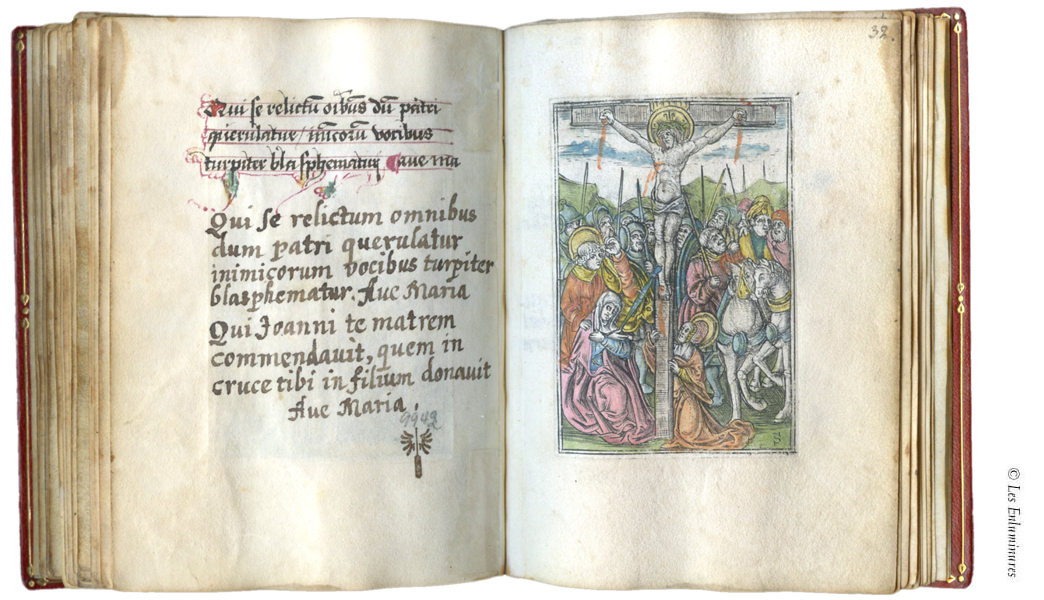 Qui se relictū oībus dū patri
querulatur / inīcorū vocibus
turpiter blasphematur aue ma
Qui se relictum omnibus
dum patri querulatur
inimicorum vocibus turpiter
blasphematur. Aue Maria
Qui Joanni te matrem
commendauit, quem in
cruce tibi in filium donauit
Aue Maria.
9942
32.
© Les Enluminures